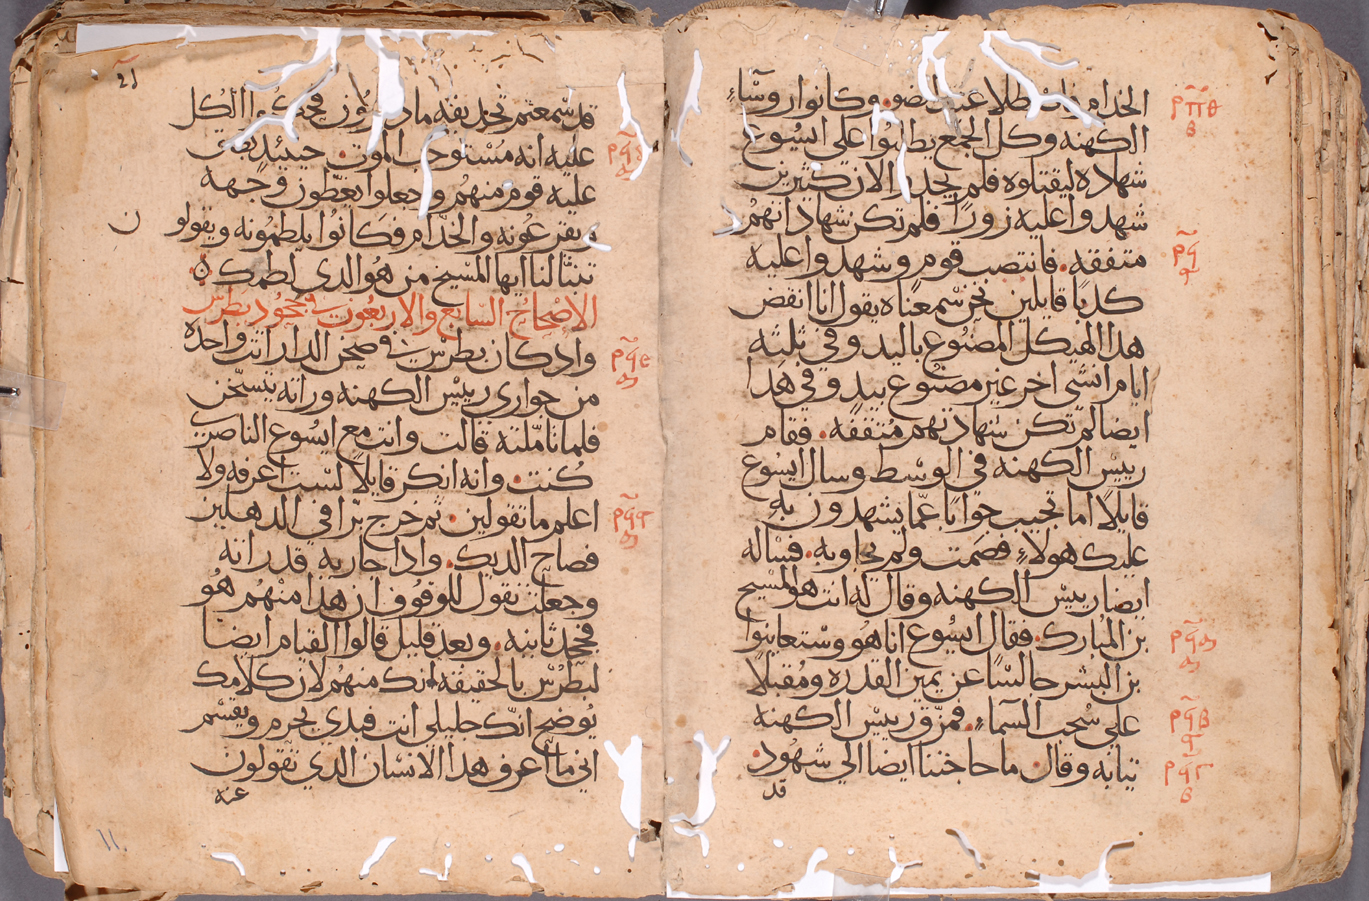 الخدام عند الضو. وكانوا روساء
الكهنه وكل الجمع يطلبوا علي ايسوع
شهاده ليقتلوه فلم يجدوا لان كثيرين
شهدوا عليه زورًا فلم تكن شهاداتهم
متفقه. فانتصب قوم وشهدوا عليه
كدبًا قايلين نحن سمعناه يقول انا انقض
هدا الهيكل المصنوع باليد وفي ثلثه
ايام انشي اخر غير مصنوع بيد وفي هدا
ايضا لم تكن شهادتهم متفقه. فقام
رييس الكهنه في الوسط وسال ايسوع
قايلًا اما تجيب جوابًا عمّا يشهدون به
عليك هولاء فصمت ولم يجاوبه. فساله
ايضا رييس الكهنه وقال له انت هو المسيح
بن المبارك. فقال ايسوع انا هو وستعاينوا
بن البشر جالسًا عن يمين القدره ومقبلا
علي سحب السماء. فمزق رييس الكهنه
تيابه وقال ما حاجتنا ايضا الي شهود.
قد
قد سمعتم تجديفه مادا ترون فحكموا الكل
عليه انه مستوجب الموت. حينيدٍ
عليه قوم منهم وجعلوا يغطون وجهه
ويقرعونه والخدّام فكانوا يلطمونه ويقولون
تنبّا لنا ايها المسيح من هو الدي لطمك
الاصحاح السابع والاربعون في جحود بطرس
واد كان بطرس في صحن الدار اتت واحده
من جواري رييس الكهنه وراته يتسخن
فلما تاملته قالت وانت مع ايسوع الناصري
كنت. وانه انكر قايلا لست اعرفه ولا
اعلم ما تقولين. تم خرج برّا في الدهليز
فصاح الديك. وادا جاريه قد راته
وجعلت تقول للوقوف ان هدا منهم هو
فجحد ثانيه. وبعد قليل قالوا القيام ايضا
لبطرس بالحقيقه انك منهم لان كلامك
يوضح انك جليلي انت فبدي يحرم ويقسم
اني ما اعرف هدا الانسان الدي تقولون
عنه
١١